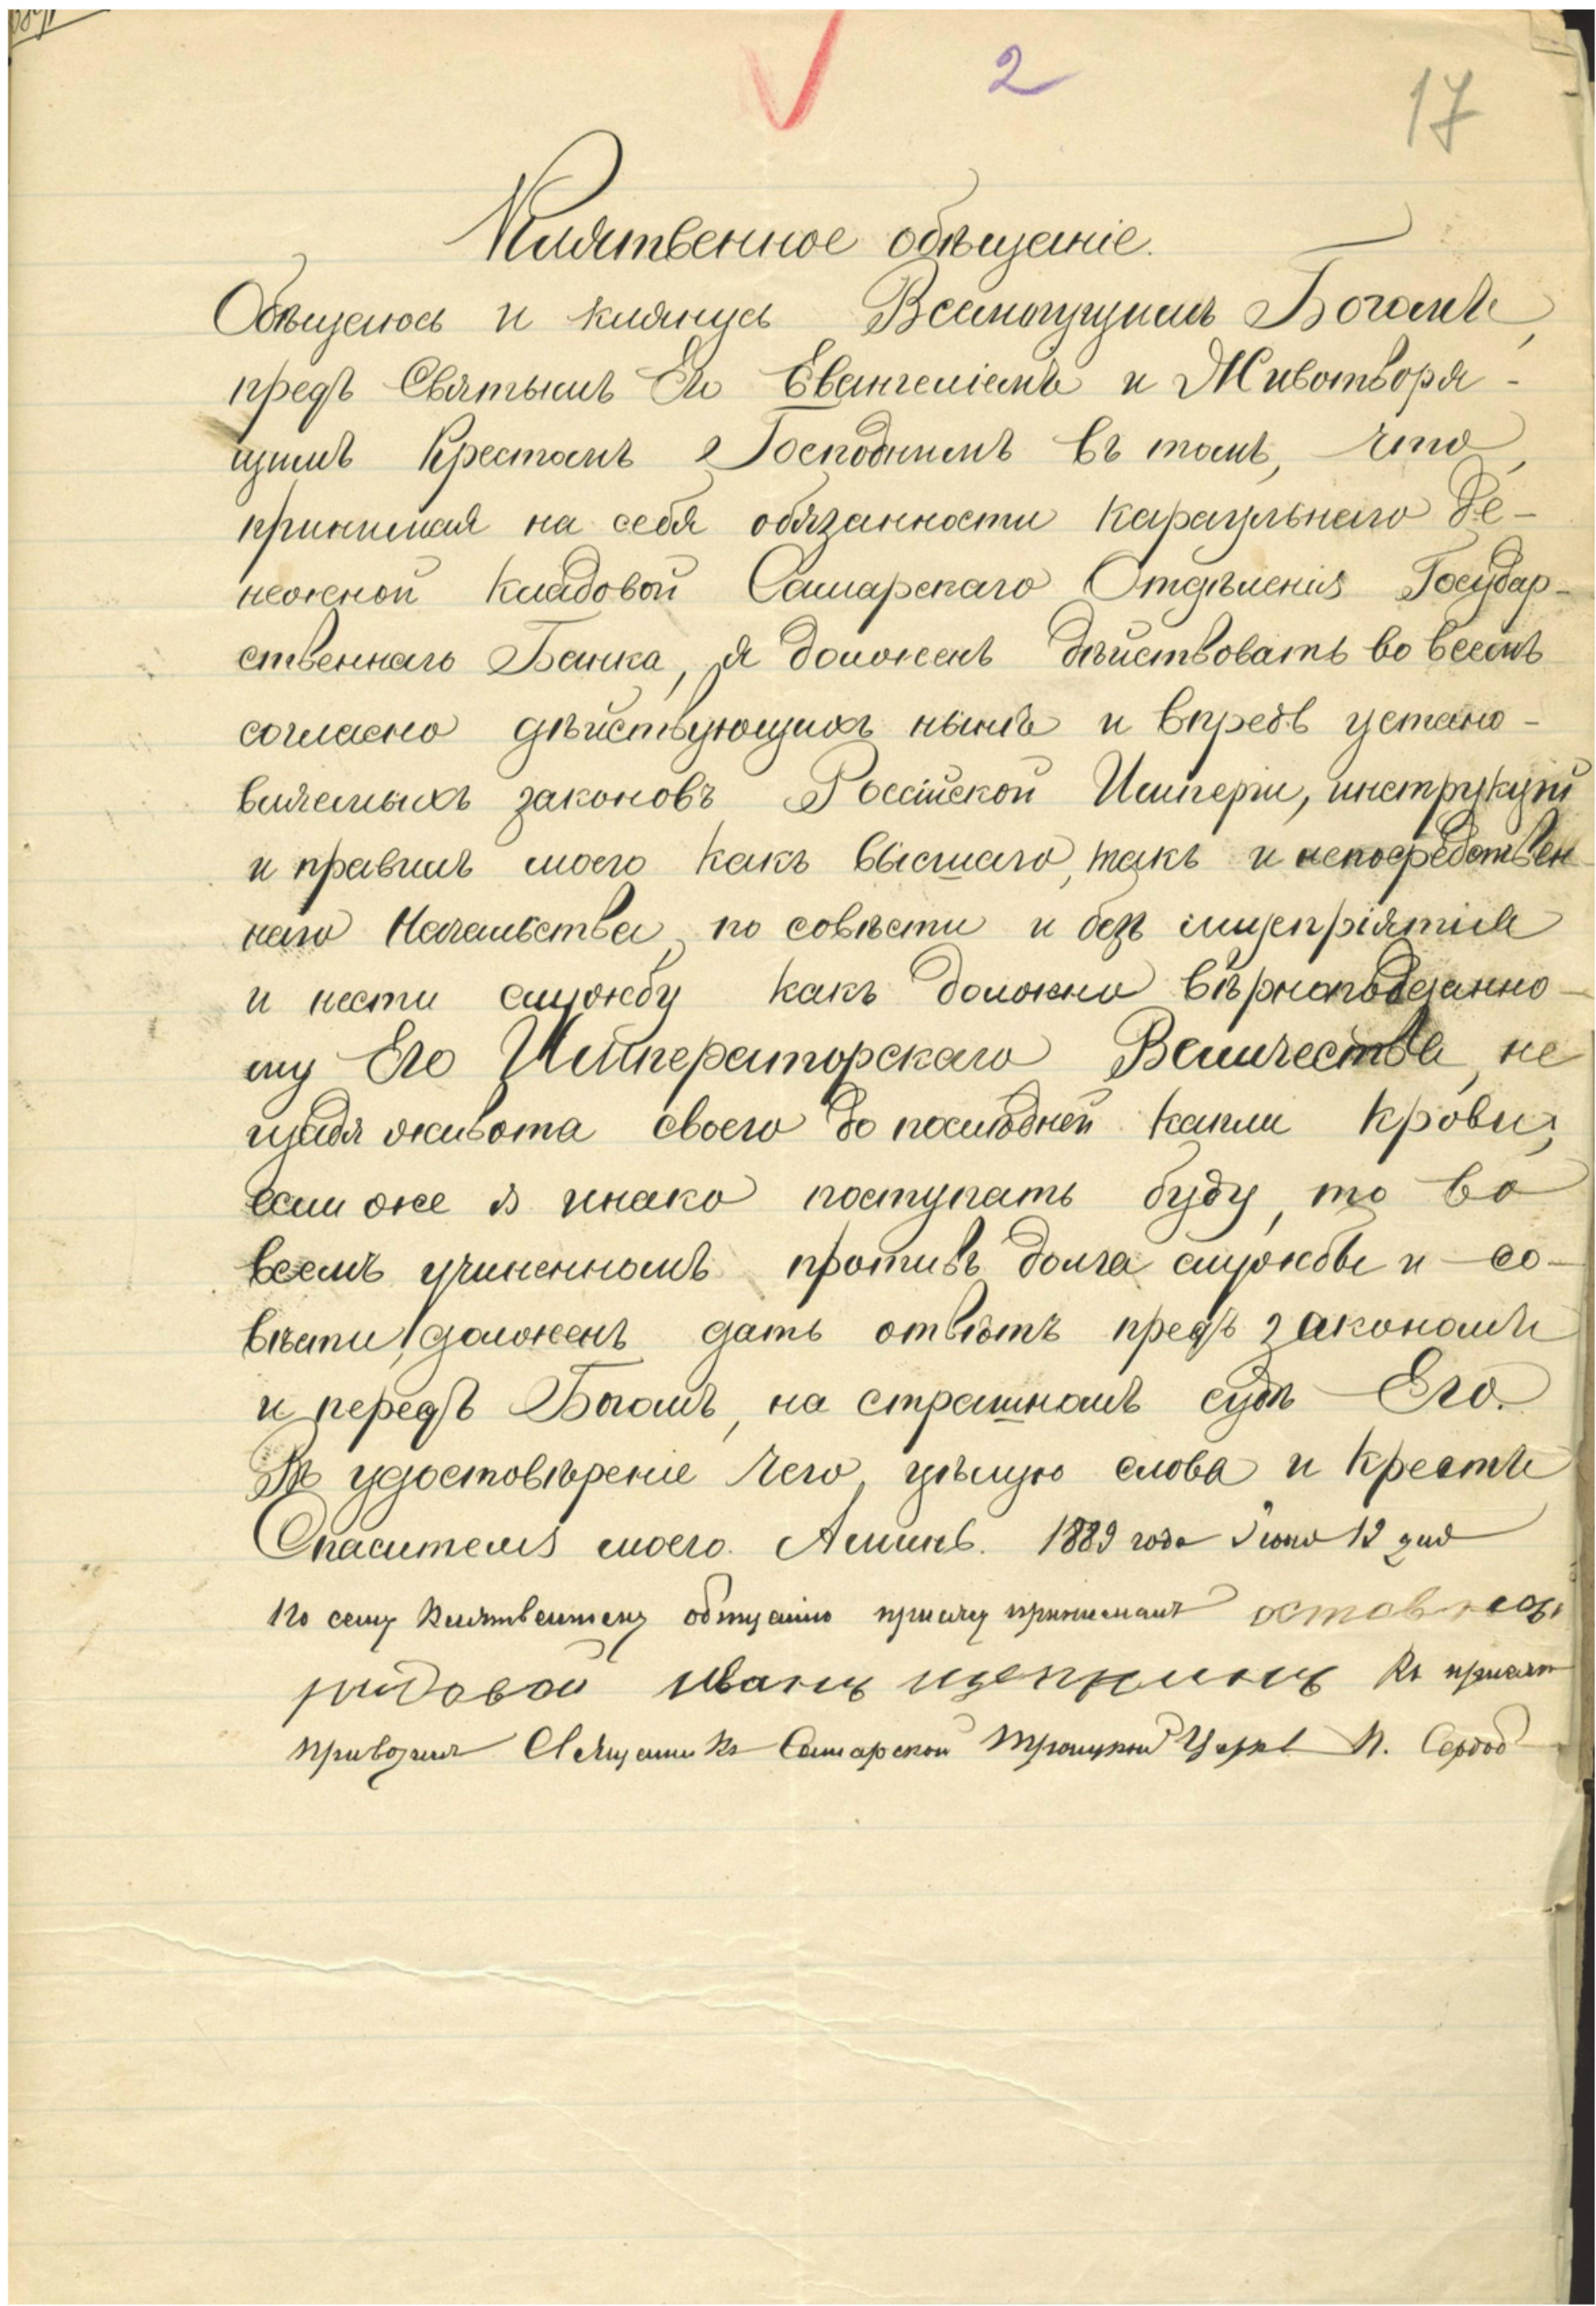 2
17
Клятвенное обѣщаніе.
Обѣщаюсь и клянусь Всемогущимъ Богомъ,
предъ Святымъ Его Евангеліемъ и Животворя-
щимъ Крестомъ Господнимъ въ томъ, что,
принимая на себя обязанности караульнаго де-
нежной кладовой Самарскаго Отдѣленія Государ-
ственнаго Банка, я долженъ дѣйствовать во всемъ
согласно дѣйствующихъ нынѣ и впредь устано-
вляемыхъ законовъ Россійской Имперіи, инструкцій
и правилъ моего какъ высшаго, такъ и непосредствен-
наго Начальства, по совѣсти и безъ лицепріятія
и нести службу какъ должно вѣрноподданно-
му Его Императорскаго Величества, не
щадя живота своего до послѣдней капли крови;
если же я инако поступать буду, то во
всемъ учиненномъ противъ долга службы и со-
вѣсти, долженъ дать отвѣтъ предъ закономъ
и передъ Богомъ, на страшномъ судѣ Его.
Въ удостовѣреніе чего, цѣлую слова и Крестъ
Спасителя моего. Аминь. 1889 года Іюня 12 дня
По сему клятвенному обѣщанію присягу принималъ
рядовой Иванъ Къ присягѣ
приводилъ Священникъ Самарской Троицкой Церкви